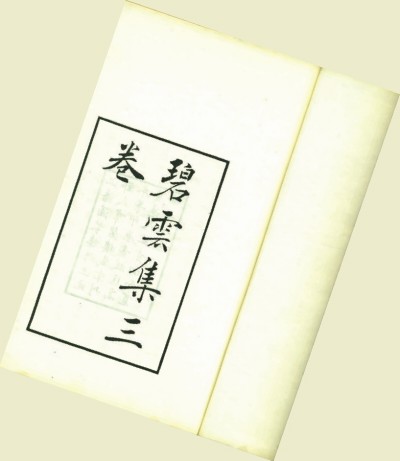 碧雲集三
卷